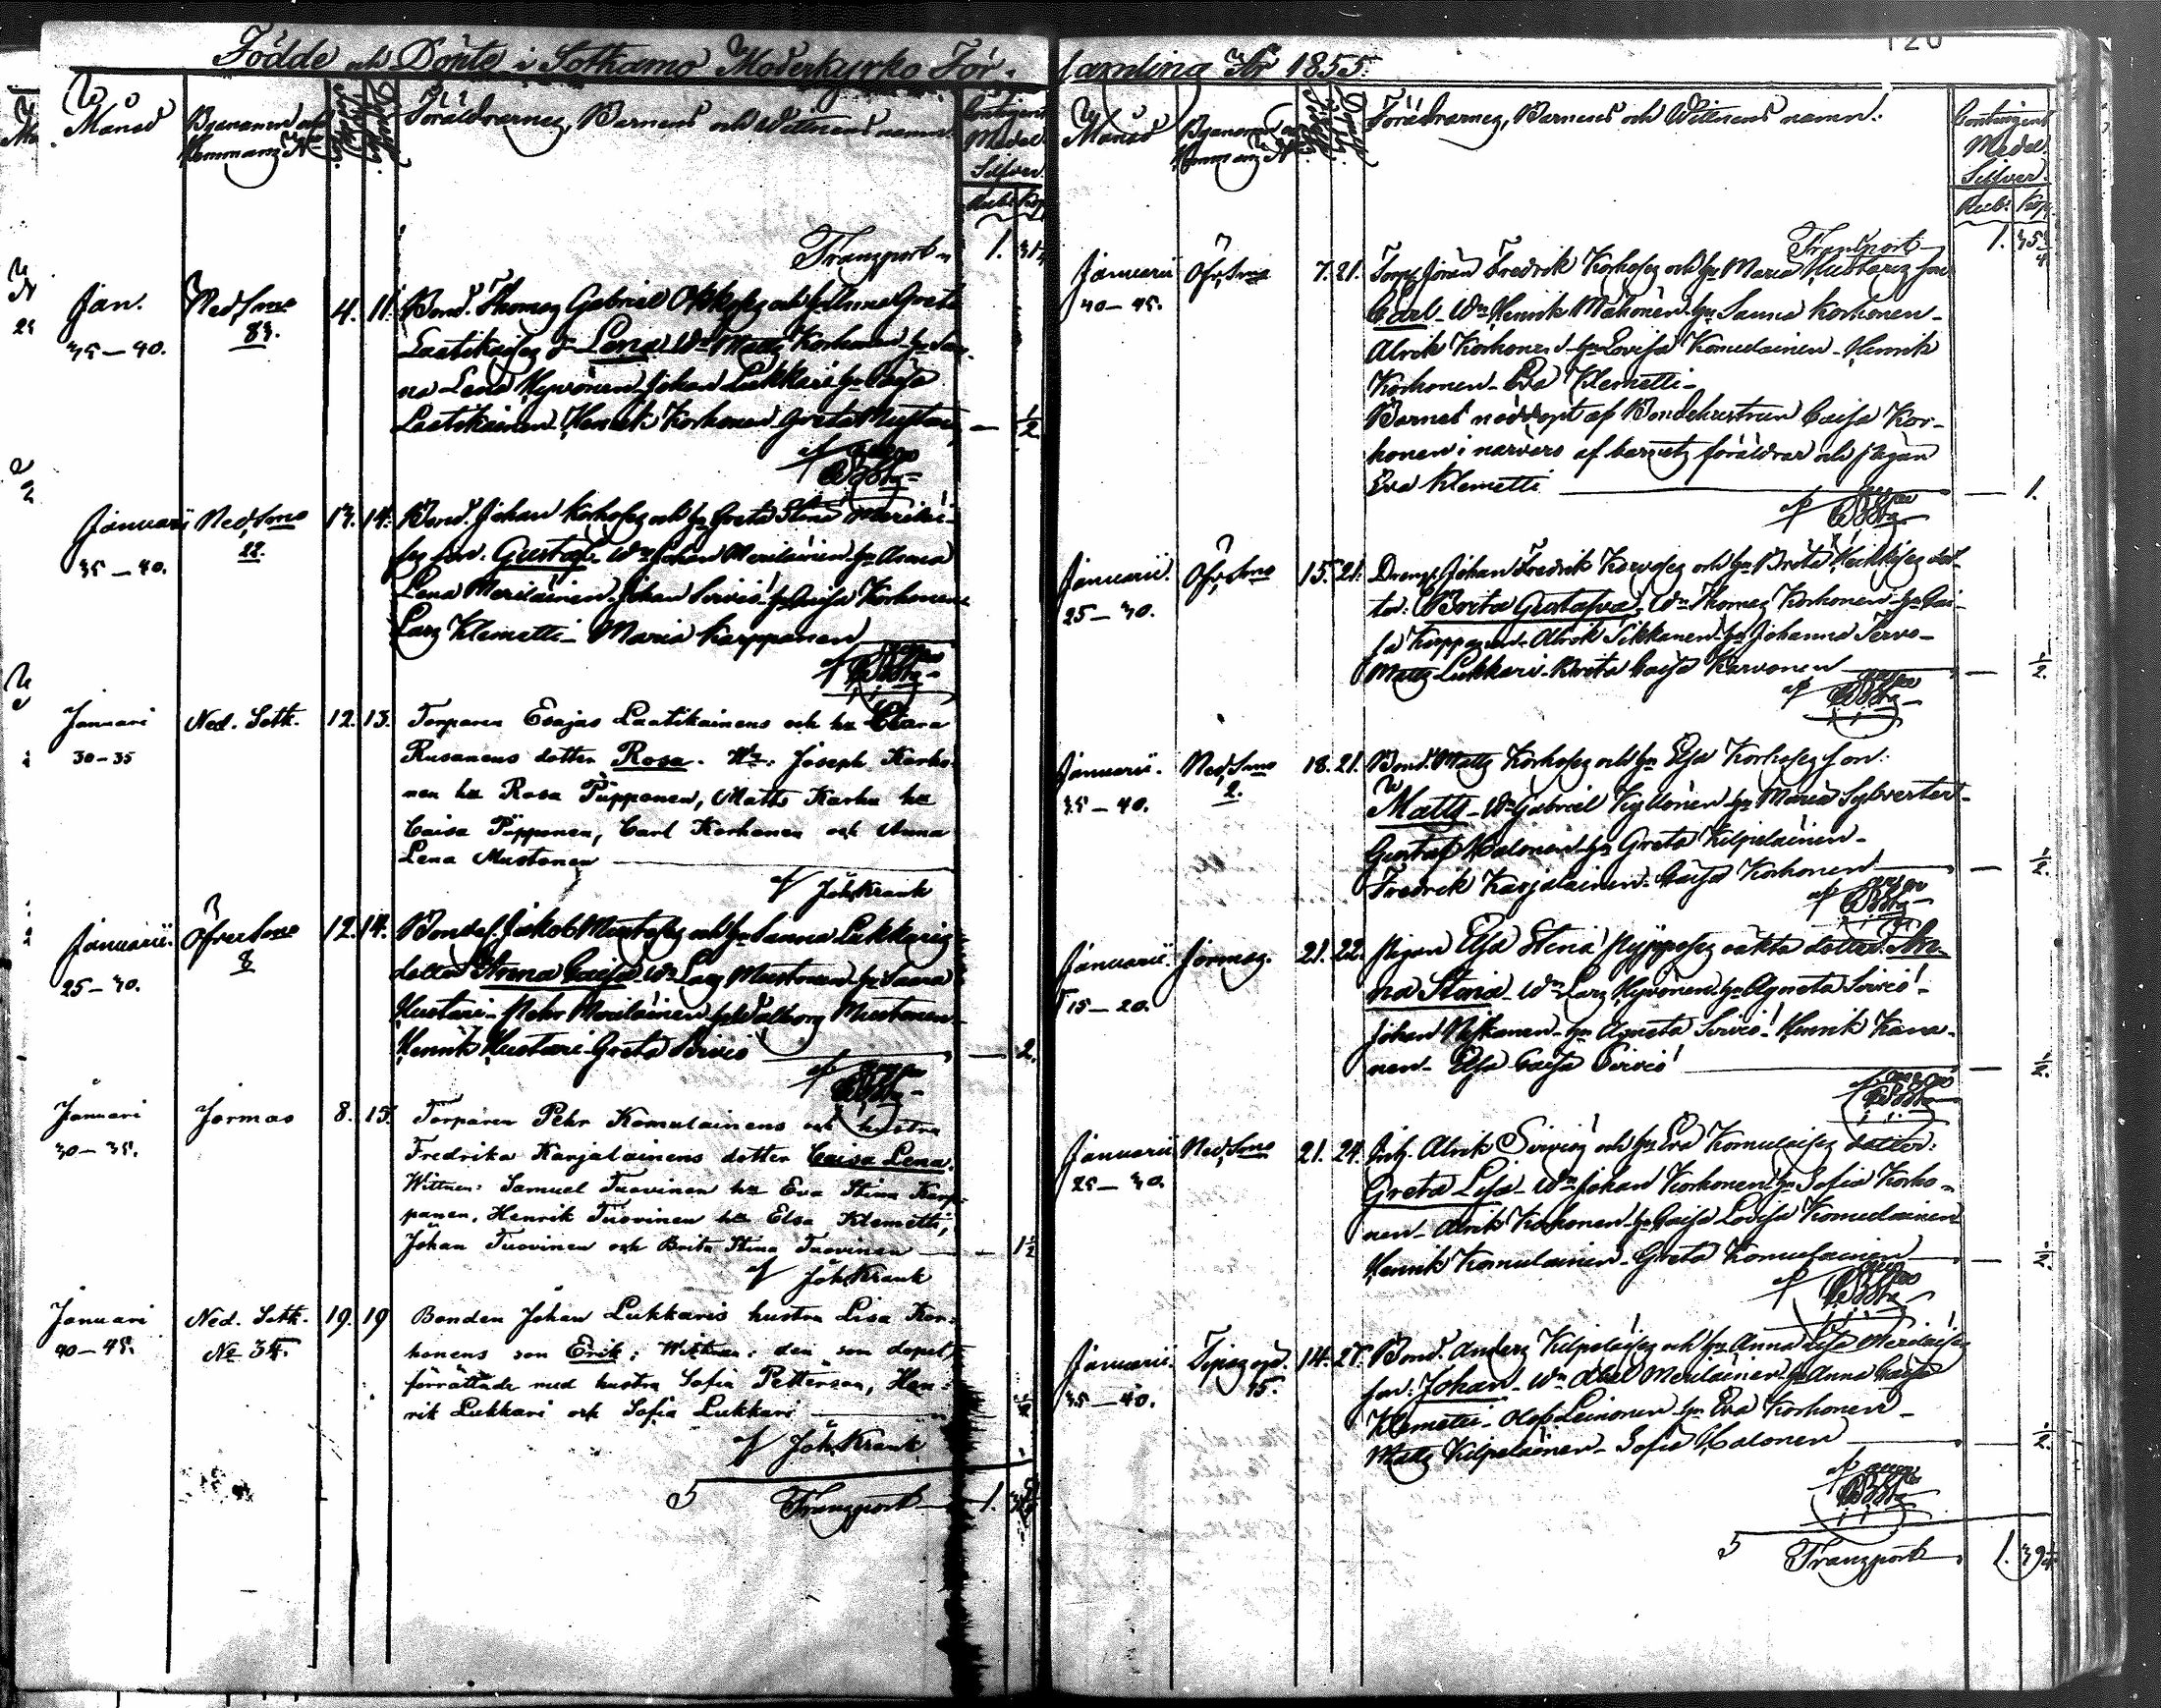 Födde och Döpte i Sotkamo Moderkyrko För-
Månad
Byanamn och
Hemmans No
Föräldrarnes, Barnens och Wittnens namn.
Contingent
Medel
Silfver.
Rub. Kop.
Transport 1.
Jan. Ned. Smo 4. 11. Bond. Thomas Gabriel och h. Anna Greta
35–40. 83. Laatikaises d. Lena Wn Matts Korhonen hu San-
na Lena Hyvönen Johan Lukkari hu Caisa
Laatikainen Henrik Korhonen Greta Mustonen — 1/2
af
Januarii Ned. Smo 13. 14. Bond. Johan Korhoses och h. Greta Stina
35–40. 22. son. Gustaf. Wn Johan Meriläinen hu Anna
Lena Meriläinen Johan Sirviö hu Caisa Korhonen
Lars Klemetti Maria Karppanen
af
Januari Ned. Sotk. 12. 13. Torparen Esajas Laatikainens och hu Clara
30–35 Rusanens dotter Rosa. Wn: Joseph Korho-
nen hu Rosa Piipponen, Matts Karhu hu
Caisa Piipponen, Carl Korhonen och Anna
Lena Mustonen
af Joh. Krank
Januarii. Öfver Smo 12. 14. Bondes. Jakob Mustoses och hu Sanna Lukkaris
25–30. 8 dotter Anna Caisa Wn Lars Mustonen hu Sanna
Hustari Pehr Meriläinen hu Walborg Mustonen
Henrik Hustari Greta Sirviö — 2.
af
Januari Jormas 8. 15. Torparen Pehr Komulainens och hustru
30–35. Fredrika Karjalainens dotter Caisa Lena.
Wittnen: Samuel Tuovinen hu Eva Stina Karp-
panen, Henrik Tuovinen hu Elsa Klemetti,
Johan Tuovinen och Brita Stina Tuovinen — 1 1/2
af Joh. Krank
Januari Ned. Sotk. 19. 19 Bonden Johan Lukkaris hustru Lisa Kor-
40–45. No 34. honens son Erik; Wittnen: den som dopet
förrättade med hustru Sofia Petterson, Hen-
rik Lukkari och Sofia Lukkari
af Joh. Krank
5 Transport 1.
samling År 1855.
Månad
Byanamn och
Hemmans No
Föräldrarnes, Barnens och Wittnens namn.
Contingent
Medel.
Silfver.
Rub. Kop.
Transport 1.
Januarii Öfv. Smo 7. 21. Torp. Jöran Fredrik Korhoses och hu Maria Hustaris son
40–45. Carl Wn Henrik Mähönen hu Sanna Korhonen
Alrik Korhonen hu Lovisa Komulainen Henrik
Korhonen Eva Klemetti
Barnet nöddöpt af Bondehustrun Caisa Kor-
honen i närvaro af barnets föräldrar och pigan
Eva Klemetti — 1.
af
Januarii. Öfv. Smo 15. 21. Dreng. Johan Fredrik Korvoses och hu Brita Heikkises dot-
25–30. ter: Brita Gustafva. Wn Thomas Korhonen hu Cai-
sa Karppanen Alrik Tikkanen hu Johanna Tervo
Matts Lukkari Brita Caisa Karvonen — 1/2.
af
Januarii. Ned. Smo 18. 21. Bond. Matts Korhoses och hu Elsa Korhoses son:
35–40. 2. Matts Wn Gabriel Kyllönen hu Maria
Gustaf Halonen hu Greta Kilpeläinen
Fredrik Karjalainen Caisa Korhonen — 1/2.
af
Januarii. Jormas. 21. 22. Pigan Elsa Stina oäkta dotter An-
15–20. na Stina Wn Lars Hyvönen hu Agneta Sirviö
Johan hu Agneta Sirviö Henrik Kana-
nen Elsa Caisa Sirviö — 1/2.
af
Januarii Ned. Smo 21. 24. Inh. Alrik Sirviös och hu Eva Komulaises dotter:
25–30. Greta Lisa Wn Johan Korhonen hu Sofia Korho-
nen Alrik Korhonen hu Caisa Lovisa Komulainen
Henrik Komulainen Greta Komulainen — 1/2.
af
Januarii. Tipasoja. 14. Bond. Anders Kilpeläises och hu Anna Lisa Meriläises
35–40. 15. son: Johan Wn Abel Meriläinen hu Anna Caisa
Klemetti Olof Leinonen hu Eva Korhonen
Matts Kilpeläinen Sofia Halonen — 1/2.
af
5 Transport 1.